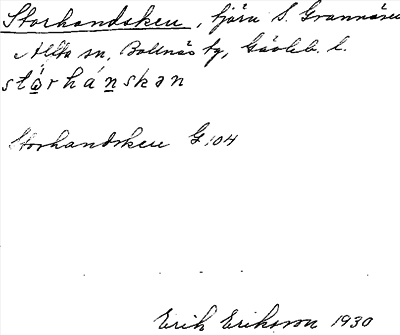 Storhandsken, tjärn S. Grannäsen
Alfta sn, Bollnäs tg, Gävleb. l.
stǻrhánskan
Storhandsken G 104
Erik Eriksson 1930